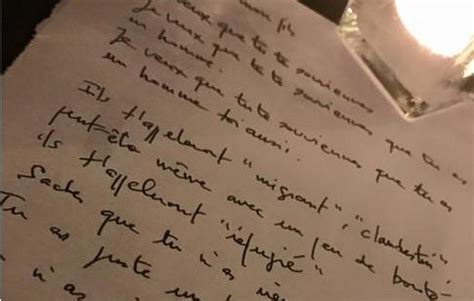 mon fils
Je veux que tu te souviennes que tu es
un homme.
Je veux que tu te souviennes que tu es
un homme toi aussi.
Ils t'appelleront "migrant", "clandestin",
peut-être même avec un peu de bonté
ils t'appelleront "réfugié"
Sache que tu n'as
Tu as juste un
n'as